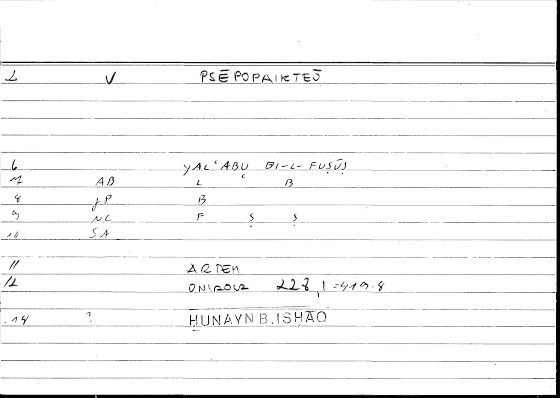 1 V PSĒPOPAIKTEŨ
6 YALʿABU BI-L-FUṢŪṢ
7 AB L ʿ B
8 JP B
9 NC F Ṣ Ṣ
10 SA
11 ARTEM
12 ONIROCR 228,1=419.8
14 ? ḤUNAYN B. ISḤĀQ